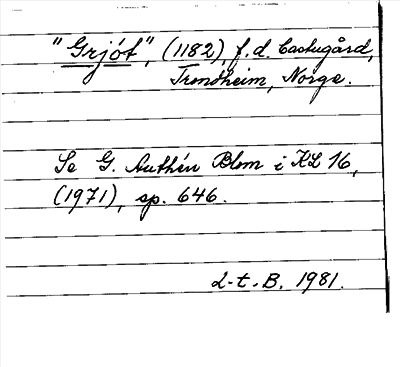 "Grjót", (1182), f.d. Castugård,
Trondheim, Norge.
Se G. Authén Blom i KL 16,
(1971), sp. 646.
L-t.B. 1981.